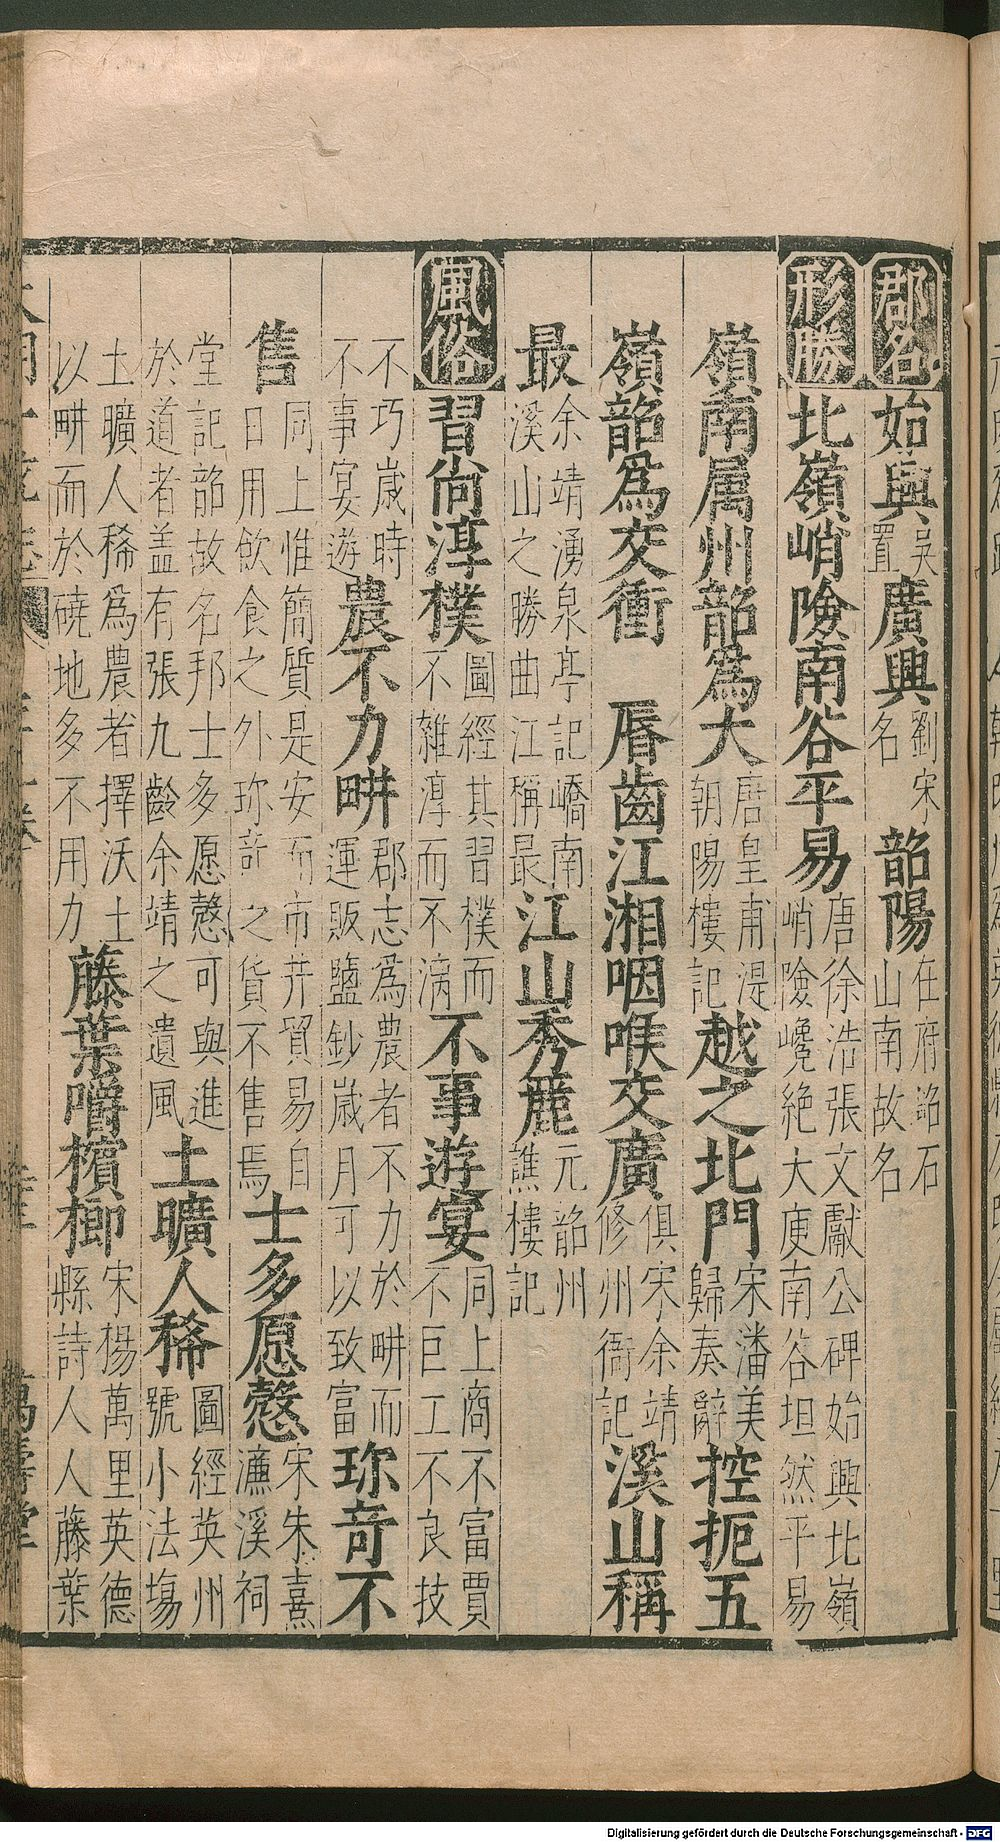 郡名 始興 吳置 廣興 劉宋名 韶陽 在府治石山南故名
形勝 北嶺峭險南谷平易 唐徐浩張文獻公碑始興北嶺峭險巉絶大庾南谷坦然平易
嶺南属州韶為大 唐皇甫湜朝陽樓記 越之北門 宋潘美歸奏辭 控扼五
嶺韶為交衝 脣齒江湘咽喉交廣 俱宋余靖修州衙記 溪山稱
最 余靖湧泉亭記嶠南溪山之勝曲江稱最 江山秀麗 元韶州譙樓記
風俗 習尚淳樸 圖經其習樸而不雜淳而不漓 不事遊宴 同上商不富賈不巨工不良技
不巧嵗時不事宴遊 農不力畊 郡志為農者不力於畊而運販鹽鈔嵗月可以致富 珎竒不
售 同上惟簡質是安而市井貿易自日用飲食之外珎竒之貨不售焉 士多愿慤 宋朱熹濂溪祠
堂記韶故名邦士多愿慤可與進於道者盖有張九齡余靖之遺風 土曠人稀 圖經英州號小法塲
土曠人稀為農者擇沃土以畊而於磽地多不用力 藤葉嚼檳榔 宋楊萬里英德縣詩人人藤葉
萬壽堂
Digitalisierung gefördert durch die Deutsche Forschungsgemeinschaft - DFG